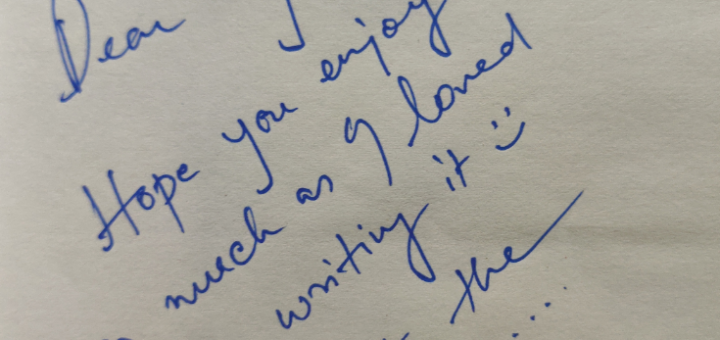 Dear
Hope you enjoy
much as I loved
writing it :)
the
...